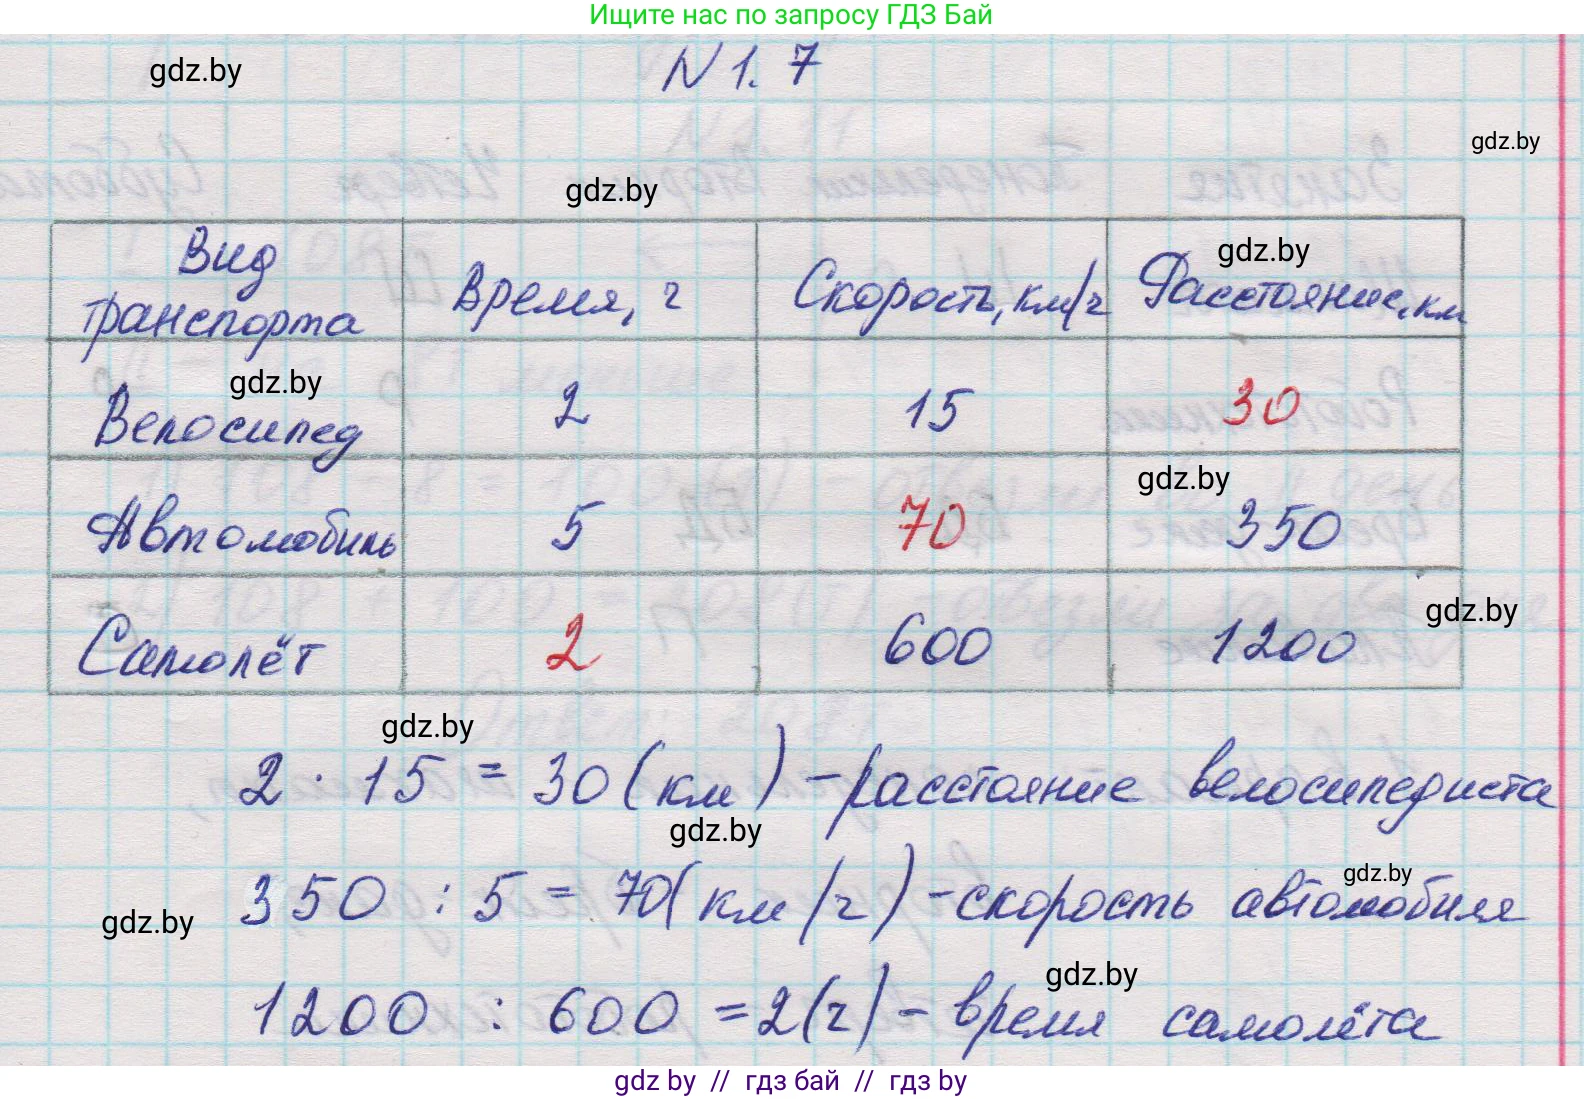 Ищите нас по запросу ГДЗ Бай
gdz.by
N 1.7
gdz.by
gdz.by
Вид транспорта
Время, г
Скорость, км/г
gdz.by
Расстояние, км
gdz.by
Велосипед
2
15
30
gdz.by
Автомобиль
5
70
350
gdz.by
Самолёт
2
600
1200
gdz.by
2 · 15 = 30 (км) - расстояние велосипедиста
gdz.by
350 : 5 = 70 (км/ч) - скорость автомобиля
gdz.by
gdz.by
gdz.by
1200 : 600 = 2 (ч) - время самолёта
gdz by // гдз бай // гдз by